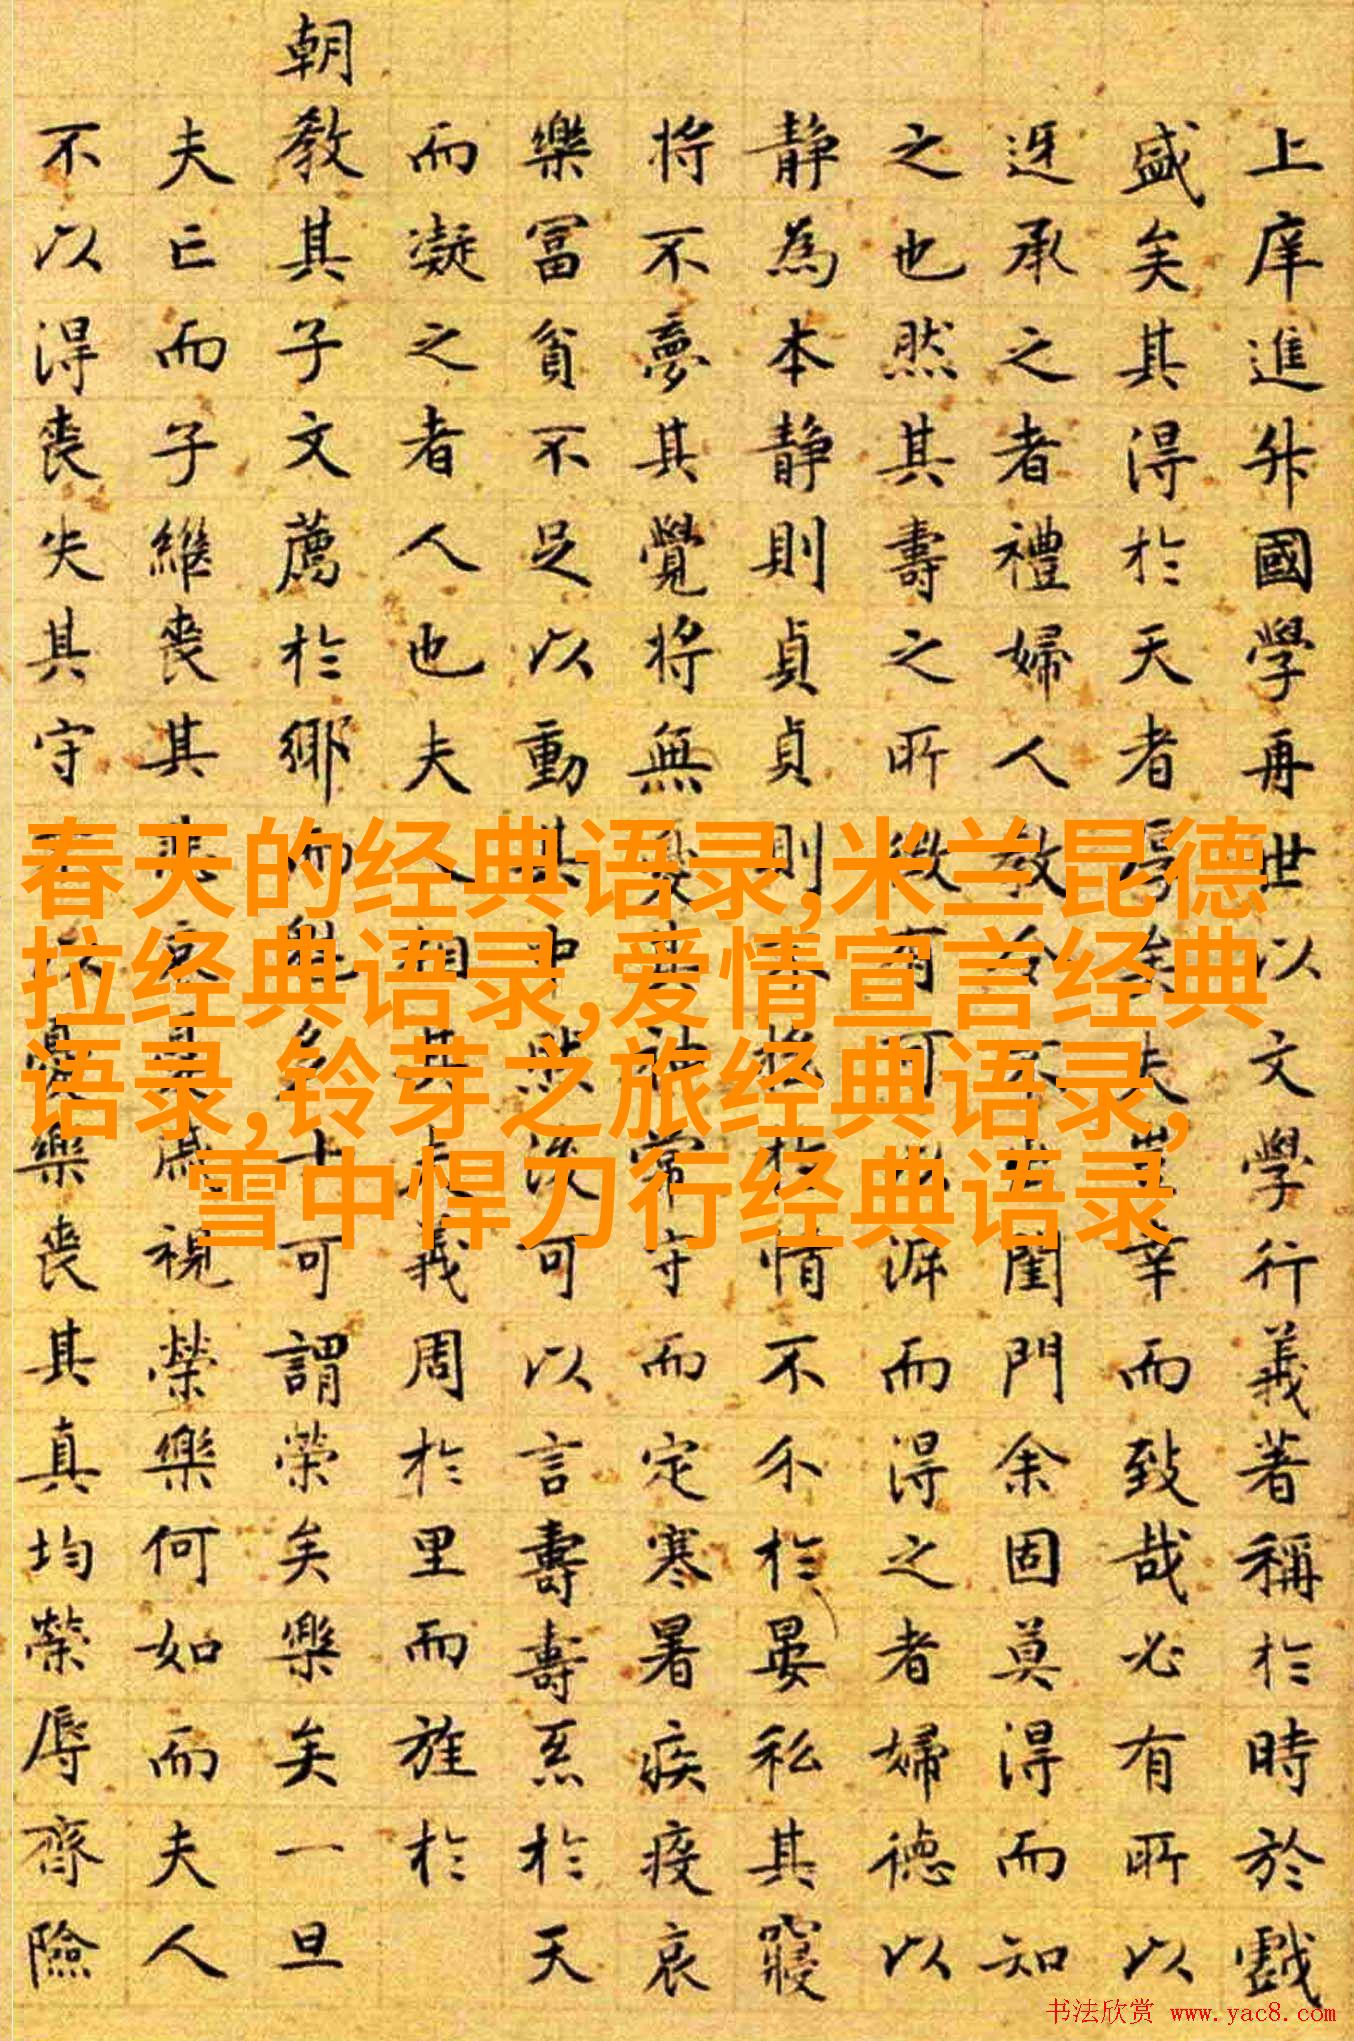 上庠進升國學再世以文學行義著稱於時於戲
盛矣其得於天者厚矣夫豈幸而致哉必有所以
迓承之者禮婦人教令不出閨門余固莫得而知
之也然其壽之所徵有可以涯而得之者婦德以
靜為本靜則貞貞則不撓於情不尒於晏私其寢
將不夢其覺將無其神常守而定寒暑疾疫哀
樂冨貧不足以動其中然後可以言壽壽烝於天
而凝之者人也夫人相其夫義周於里而旌於
朝教其子文薦於鄉而能多士可謂榮矣樂矣一旦
夫亡而子繼喪其悲哀戚視榮樂何如而夫人
不以得喪失其守不以憂樂喪其真均榮辱齊險
春天的经典语录,米兰昆德
拉经典语录,爱情宣言经典
语录,铃芽之旅经典语录,
雪中悍刀行经典语录
书法欣赏 www.yac8.com